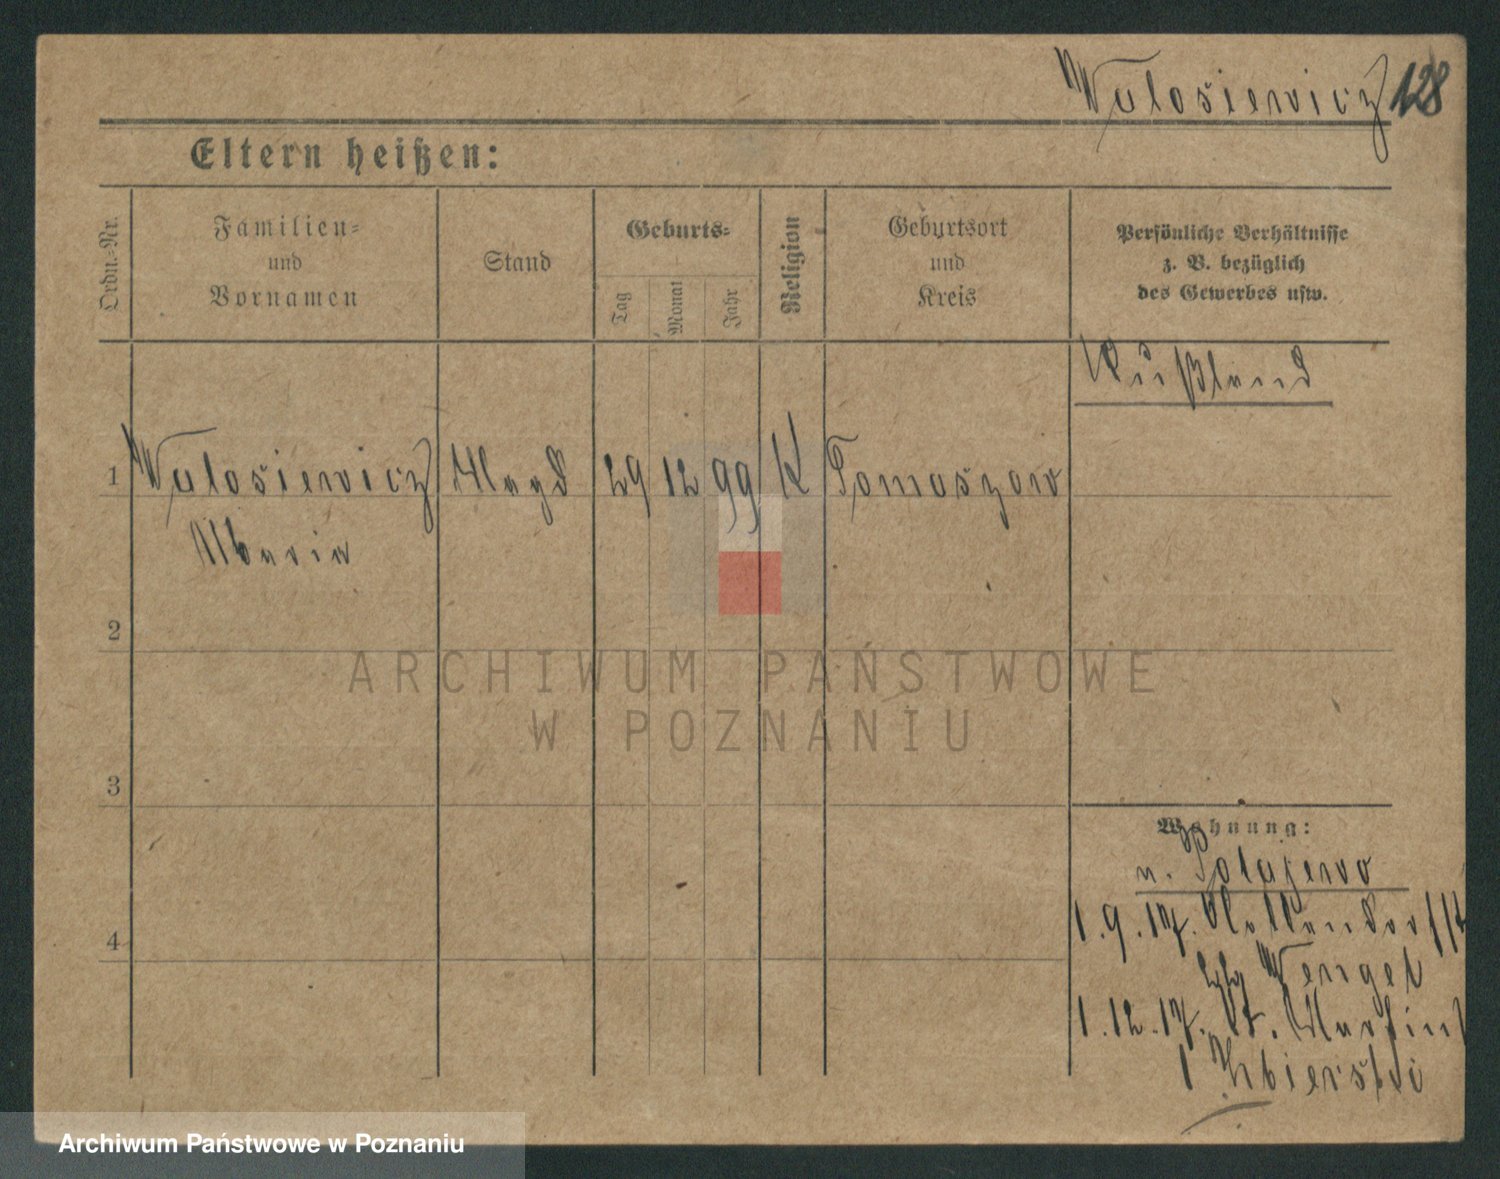 Walosiewicz 128
Eltern heißen:
Ordn.-Nr.
Familien-
und
Vornamen
Stand
Geburts-
Tag
Monat
Jahr
Religion
Geburtsort
und
Kreis
Persönliche Verhältnisse
z. B. bezüglich
des Gewerbes usw.
Rußland
1 Walosiewicz Magd 29 12 99 K Tomaszow
Maria
2
ARCHIWUM PAŃSTWOWE
W POZNANIU
3
Wohnung:
n. Polajewo
1.9.17.
Wenzel
1.12.17. St. Martin
1
4
Archiwum Państwowe w Poznaniu